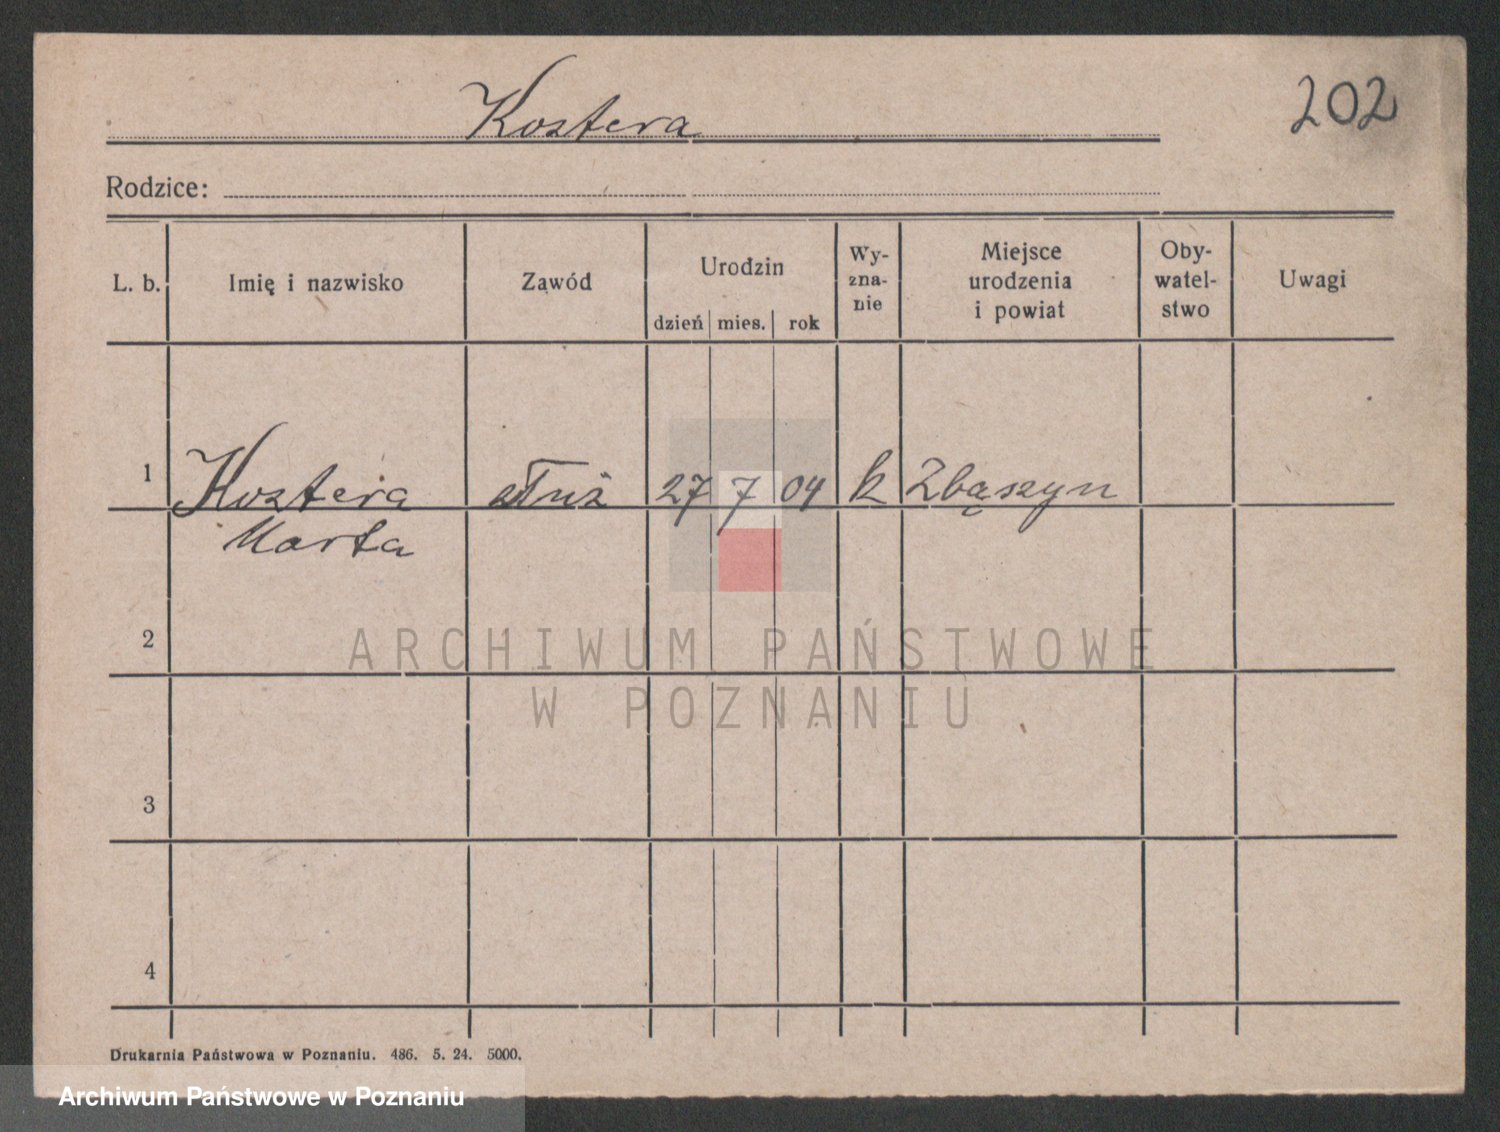 Kostera
202
Rodzice:
L. b. Imię i nazwisko Zawód Urodzin dzień mies. rok Wy-
zna-
nie Miejsce
urodzenia
i powiat Oby-
watel-
stwo Uwagi
1 Kostera służ 27 7 04 k Zbąszyn
Marta
2
ARCHIWUM PAŃSTWOWE
W POZNANIU
3
4
Drukarnia Państwowa w Poznaniu. 486. 5. 24. 5000.
Archiwum Państwowe w Poznaniu